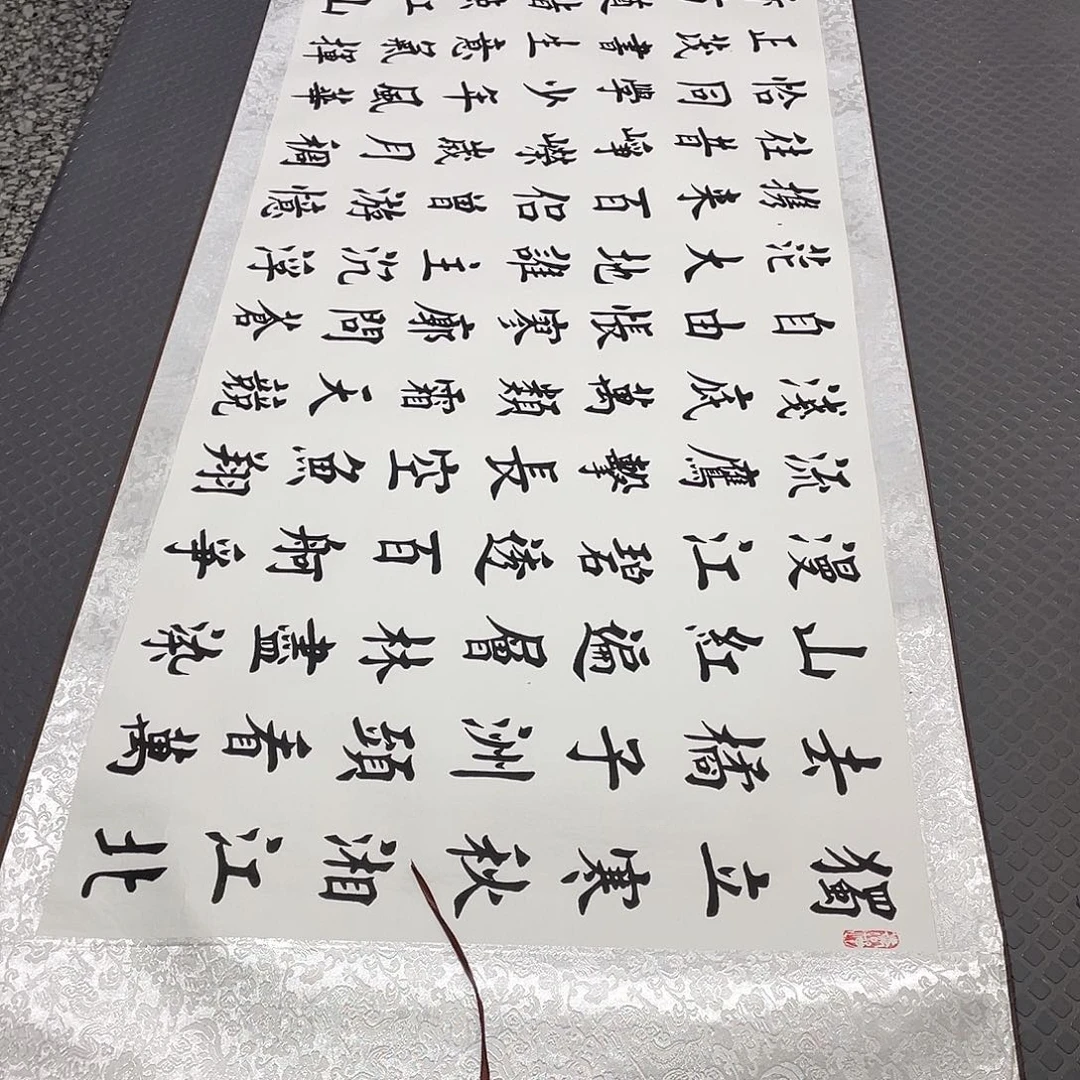 獨立寒秋湘江北
去橘子洲頭看萬
山紅遍層林盡染
漫江碧透百舸爭
流鷹擊長空魚翔
淺底萬類霜天競
自由悵寒廓問蒼
茫大地誰主沉浮
携來百侶曾游憶
往昔崢嶸歲月稠
恰同學少年風華
正茂書生意氣揮
江山